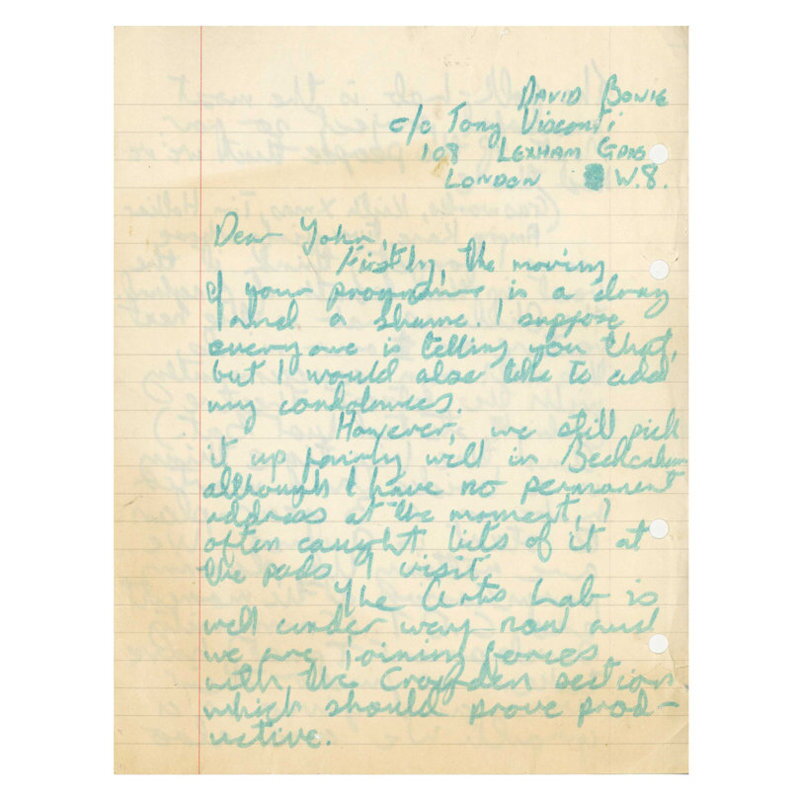 DAVID BOWIE
c/o Tony Visconti
108 LEXHAM GDNS
LONDON W.8.
Dear John,
Firstly, the moving
of your programme is a drag
and a shame. I suppose
everyone is telling you that,
but I would also like to add
my condolences.
However, we still pick
it up fairly well in Beckenham
although I have no permanent
address at the moment, I
often caught bits of it at
the pads I visit.
The Arts Lab is
well under way now and
we are joining forces
with the Croydon section
which should prove prod-
uctive.